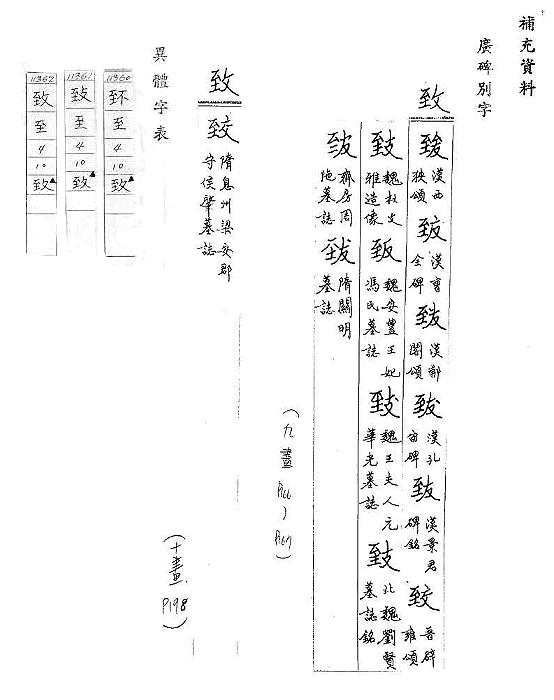 補充資料
廣碑別字
致
漢西狹頌
漢曹全碑
漢郙閣頌
漢孔宙碑
漢景君碑銘
晉辟雍頌
魏杜文雅造像
魏安豐王妃馮氏墓誌
魏王夫人元華光墓誌
北魏劉賢墓誌銘
齊房周陁墓誌
隋關明墓誌
(九畫 P166)P167)
致
隋息州梁安郡守侯肇墓誌
(十畫 P198)
異體字表
11360
至
4
10
致▲
11361
至
4
10
致▲
11362
至
4
10
致▲